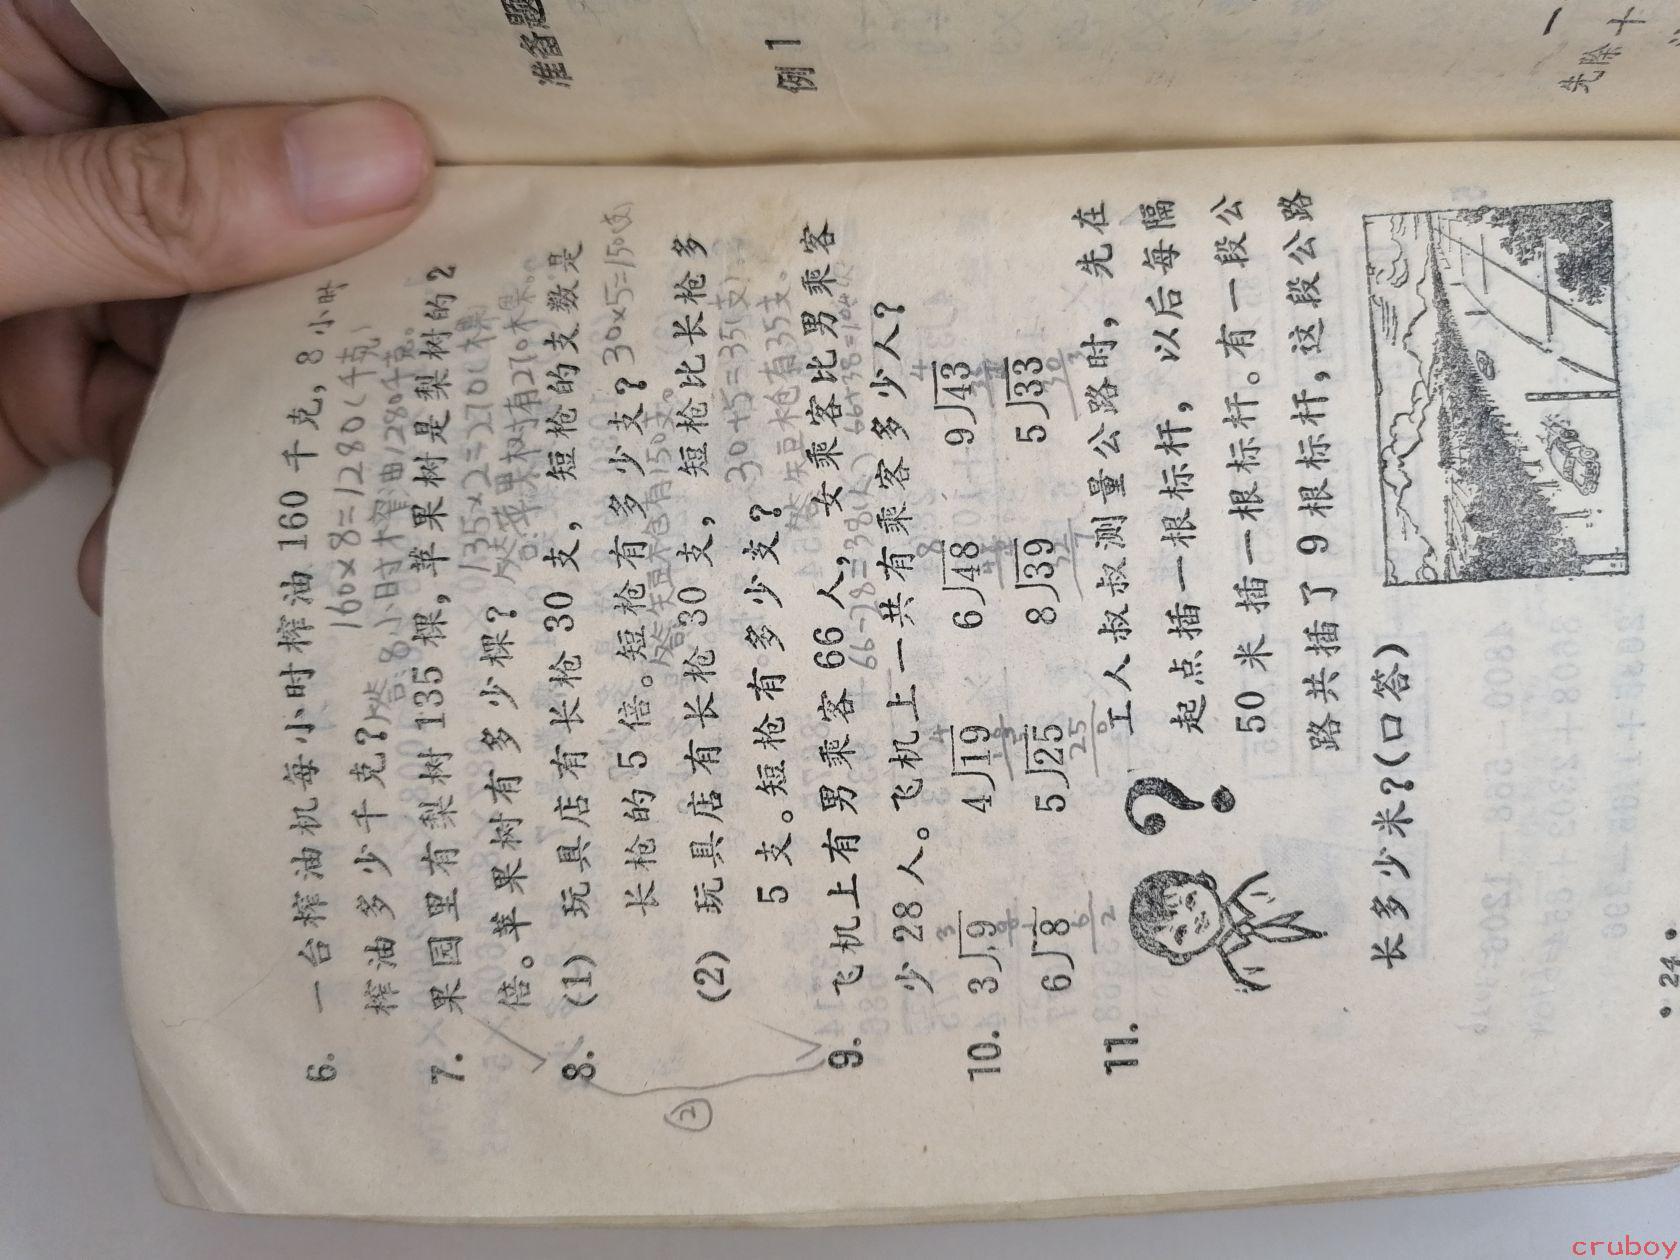 准备题
例 1
先除
6. 一台榨油机每小时榨油 160 千克，8 小时
160×8=1280(千克)
榨油多少千克？答:8小时木窄油1280千克。
7. 果园里有梨树 135 棵，苹果树是梨树的 2
135×2=270(木果)
倍。苹果树有多少棵？答:苹果树有270木果。
8. (1) 玩具店有长枪 30 支，短枪的支数是
长枪的 5 倍。短枪有多少支？30×5=150(支)
答:短枪有150支。
(2) 玩具店有长枪 30 支，短枪比长枪多
5 支。短枪有多少支？30+5=35(支)。
答:短枪有35支。
②
9. 飞机上有男乘客 66 人，女乘客比男乘客
66-28=38(人) 66+38=104(人)
少 28 人。飞机上一共有乘客多少人？
10. 3)9 4)19 6)48 9)43
6)8 5)25 8)39 5)33
11. 工人叔叔测量公路时，先在
起点插一根标杆，以后每隔
50 米插一根标杆。有一段公
路共插了 9 根标杆，这段公路
长多少米？(口答)
？
• 24 •
cruboy